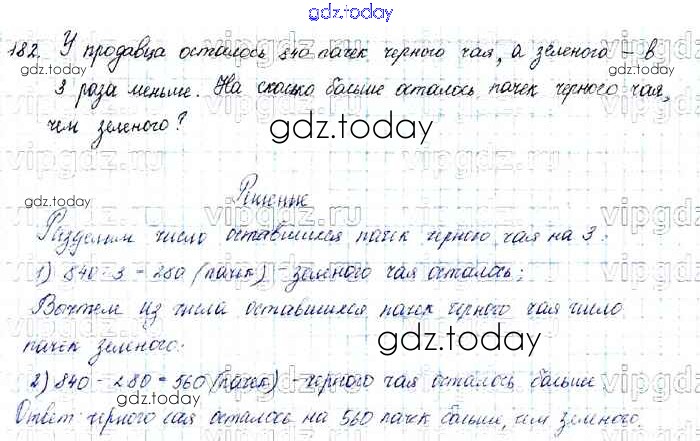 gdz.today
182. У продавца осталось 840 пачек черного чая, а зеленого – в
gdz.today
3 раза меньше. На сколько больше осталось пачек черного чая,
чем зеленого?
gdz.today
vipgdz.ru
gdz.today
Решение
vipgdz.ru
Разделим число оставшихся пачек черного чая на 3:
1) 840 : 3 = 280 (пачек) – зеленого чая осталось;
Вычтем из числа оставшихся пачек черного чая число
пачек зеленого:
gdz.today
2) 840 - 280 = 560 (пачек) – черного чая осталось больше
Ответ: черного чая осталось на 560 пачек больше, чем зеленого.
gdz.today